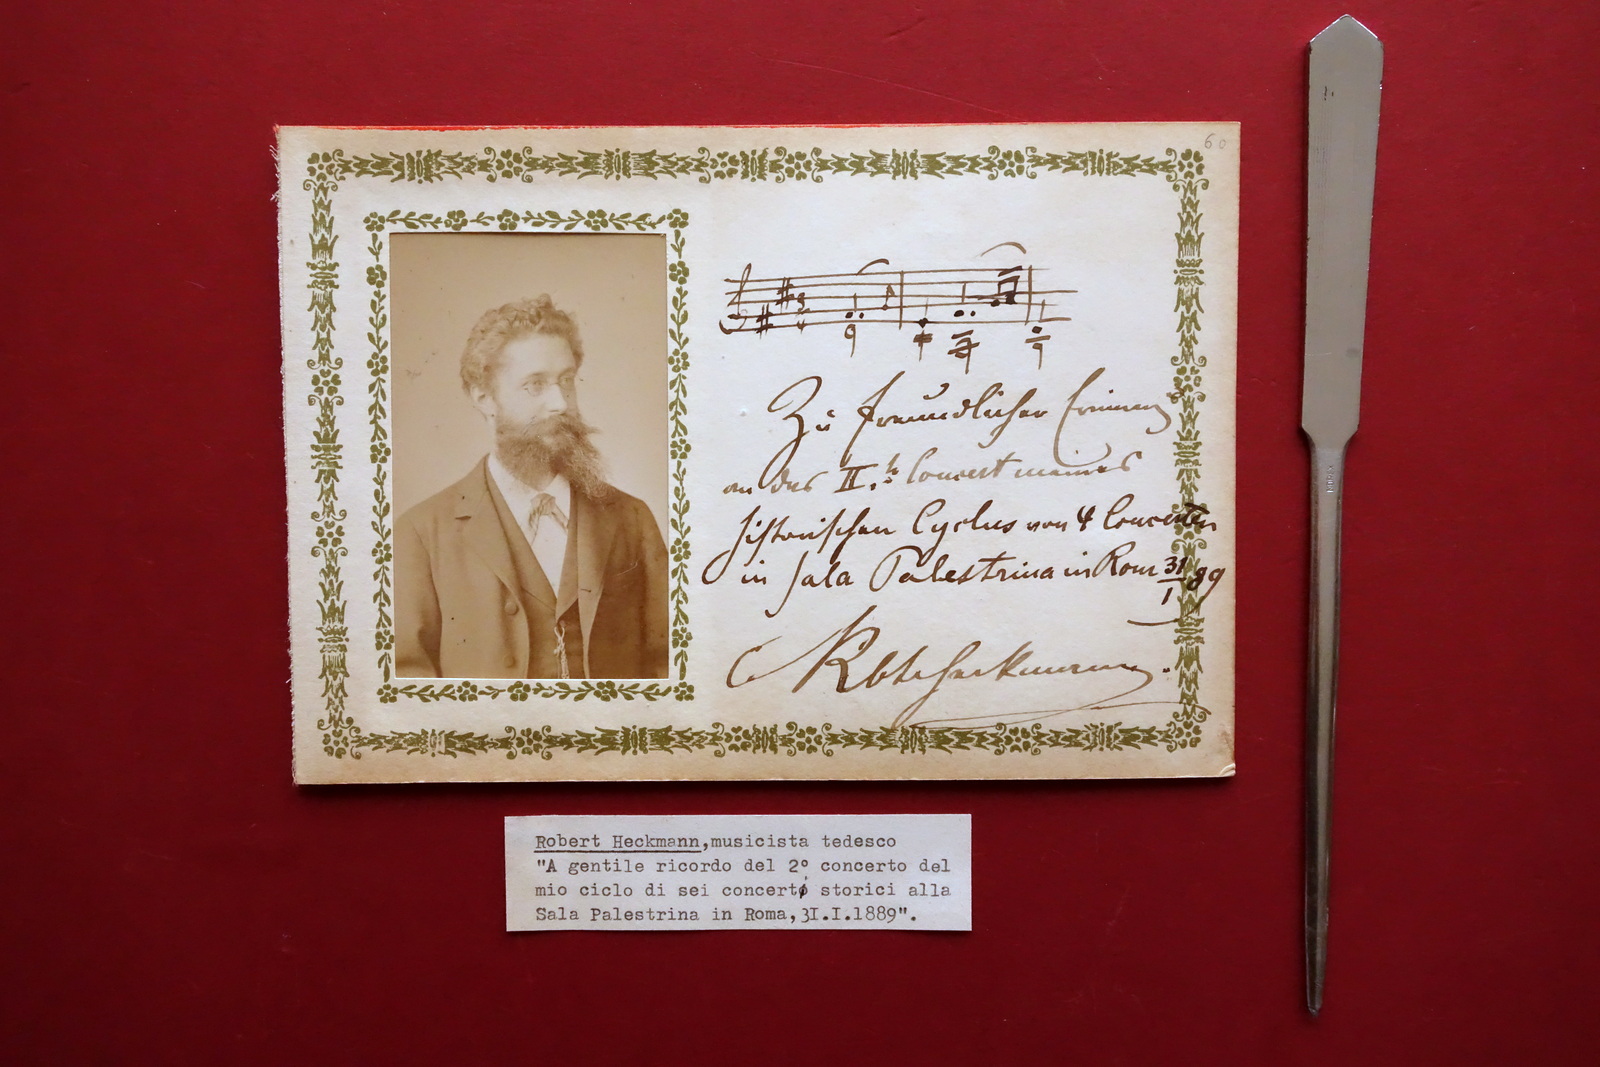 60
Zu freundlicher Erinnerg
an das II.te Concert meines
historischen Cyclus von 4 Concerten
in Sala Palestrina in Rom 31/1 89
RobHeckmann.
Robert Heckmann,musicista tedesco
"A gentile ricordo del 2° concerto del
mio ciclo di sei concerti storici alla
Sala Palestrina in Roma,3I.I.1889".